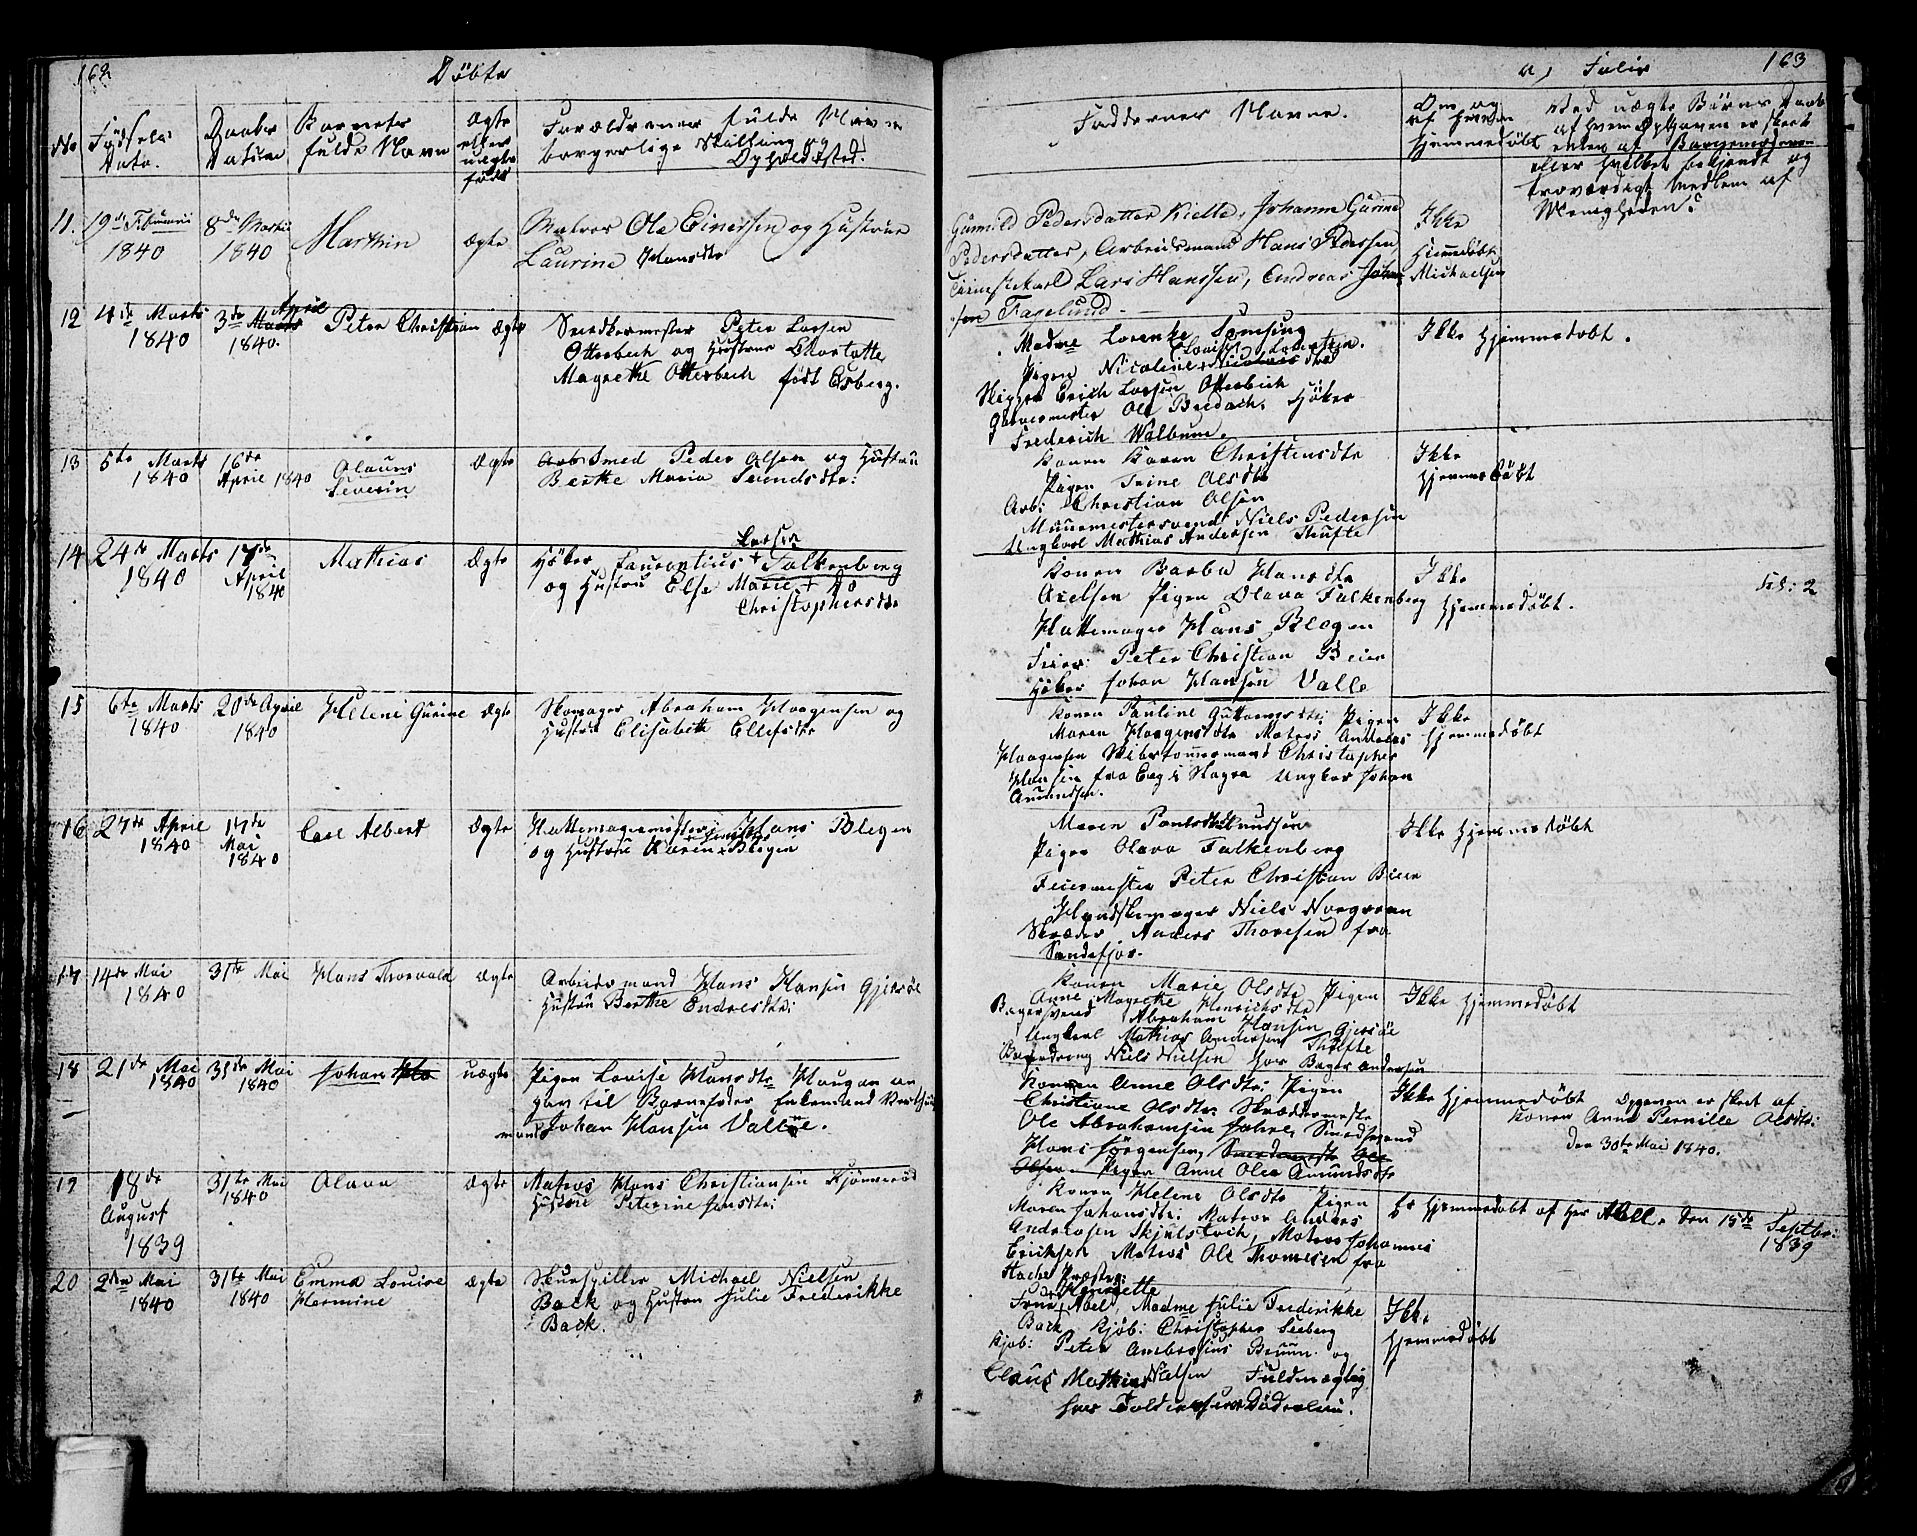 162
Döbte
No
Födsels
Dato.
Daabs
Datum
Barnets
fulde Navn
Ægte
eller
uægte
født
Forældrenes fulde Navn
borgerlige Stilling og
Opholdssted.
11.
19de Februari
1840
8de Marts
1840
Marthin
Ægte
Matros Ole Einersen og Hustrue
Laurine Hansdtr
12
4de Marts
1840
April
3de Marts
1840.
Peter Christian
Ægte
Snedkermester Peter Larsen
Otterbech og Hustrue Charlotte
Magrethe Otterbech født Esberg.
13
5te Marts
1840
16de
April 1840
Olauus
Severin
Ægte
Arb Smed Peder Olsen og Hustru
Berthe Maria Svendsdtr:
14
24de Marts
1840
17de
April
1840
Mathias
Ægte
Larsen
Höker Laurentius + Falkenberg
og Hustru Else Marie +
Christophersdtr
15
6te Marts
1840
20de April
1840
Heleni Gurine
Ægte
Skomager Abraham Haagensen og
Hustru Elisabeth Ellefsdtr
16
27de April
1840
17de
Mai
1840
Carl Albert
Ægte
Hattemagermester Hans Blegen
og Hustru Karen Blegen
17
14de Mai
1840
31te Mai
Hans Thorvald
Ægte
Arbeidsmand Hans Hansen Gjersöe
Hustru Berthe Endresdtr:
18
21de Mai
1840
31de Mai
1840
Johan
uægte
Pigen Lovise Hansdtr Haugan an
gav til Barnefader Enkemand
mand Johan Hansen Vallöe.
19
18de
August
1839
31te Mai
1840
Olava
Ægte
Matros Hans Christiansen Kjönneröd
Hustru Peterine Jansdtr:
20
2den Mai
1840
31te Mai
1840
Emma Louise
Hermine
Ægte
Skuespiller Michael Nielsen
Back og Hustru Julie Frederikke
Back.
163
Faddernes Navne.
Om og
af hvem
hjemmedøbt
Ved uægte Börns Daab
af hvem Opgaven er skeet
enten af Barnemoderen
eller hvilket bekjendt og
troværdigt Medlem af
Menigheden?
Gunnild Pedersdatter Johanne Gurine
Pedersdatter, Arbeidsmand Hans Pedersen
Lars Hanssen, Andreas Johan
sen Fagelund.
Ikke
Hjemmedøbt
Michaelsen
Madme Lorentze Tomsing
Pigen Nicoline
Skipper Erich Larsen Otterbech
Garvermester Ole Bredach. Höker
Frederich Walbum.
Ikke Hjemmedøbt.
Konen Karen Christensdtr
Pigen Trine Olsdtr
Arb: Christian Olsen
Muurmestersvend Niels Pedersen
Ungkarl Mathias Andersen Thufte
Ikke
hjemmedöbt
Konen Barba Hansdtr
Axelsen Pigen Olava Falkenberg
Hattemager Hans Blegen
Feier: Peter Christian Beier
Höker Johan Hansen Valle
Ikke
hjemmedøbt.
Konen Pauline Guttormsdtr: Pigen
Maren Haagensdtr Matros Andreas
Haagensen Skibstømmermand Christopher
Hansen fra Eeg i Slagen Ungkar Johan
Amundsen.
Ikke
hjemmedøbt
Maren Paulsdtr Knudsen
Pigen Olava Falkenberg
Feiermester Peter Christian Beier
Handskemager Niels Norgreen
Skræder Anders Thoresen fra
Sandefjor.
Ikke Hjemmedøbt
Konen Marie Olsdtr Pigen
Anne Magrethe Henrichsdtr
Bagersvend Abraham Hansen Gjersöe
Ungkarl Mathias Andersen Thufte
Bagerdreng Niels Nielsen hos Bager Andersen
Ikke Hjemmedøbt
Konen Anne Olsdtr: Pigen
Christiane Olsdtr: Skræddermester
Ole Abrahamsen Jahre, Smedsvend
Hans Jörgensen, Snedermester Ole
Olsen Pigen Anne Olea Amundsdtr
Ikke Hjemmedøbt
Opgaven er skeet af
Konen Anne Pernille Olsdtr:
den 30te Mai 1840.
Konen Helene Olsdtr Pigen
Maren Johansdtr: Matros Anders
Andersen Skjelsvich, Matros Johannes
Ericksen Matros Ole Thomesen fra
Er Hjemmedøbt af Hr Abel. den 15de Septbr:
1839
Henriette
Frue Abel, Madme Julie Frederikke
Back Kjöb: Christopher Seeberg
Kjöb: Peter Ambrosius Bruun og
Claus Mathias Nielsen Fuldmægtig
hos
Ikke
hjemmedøbt